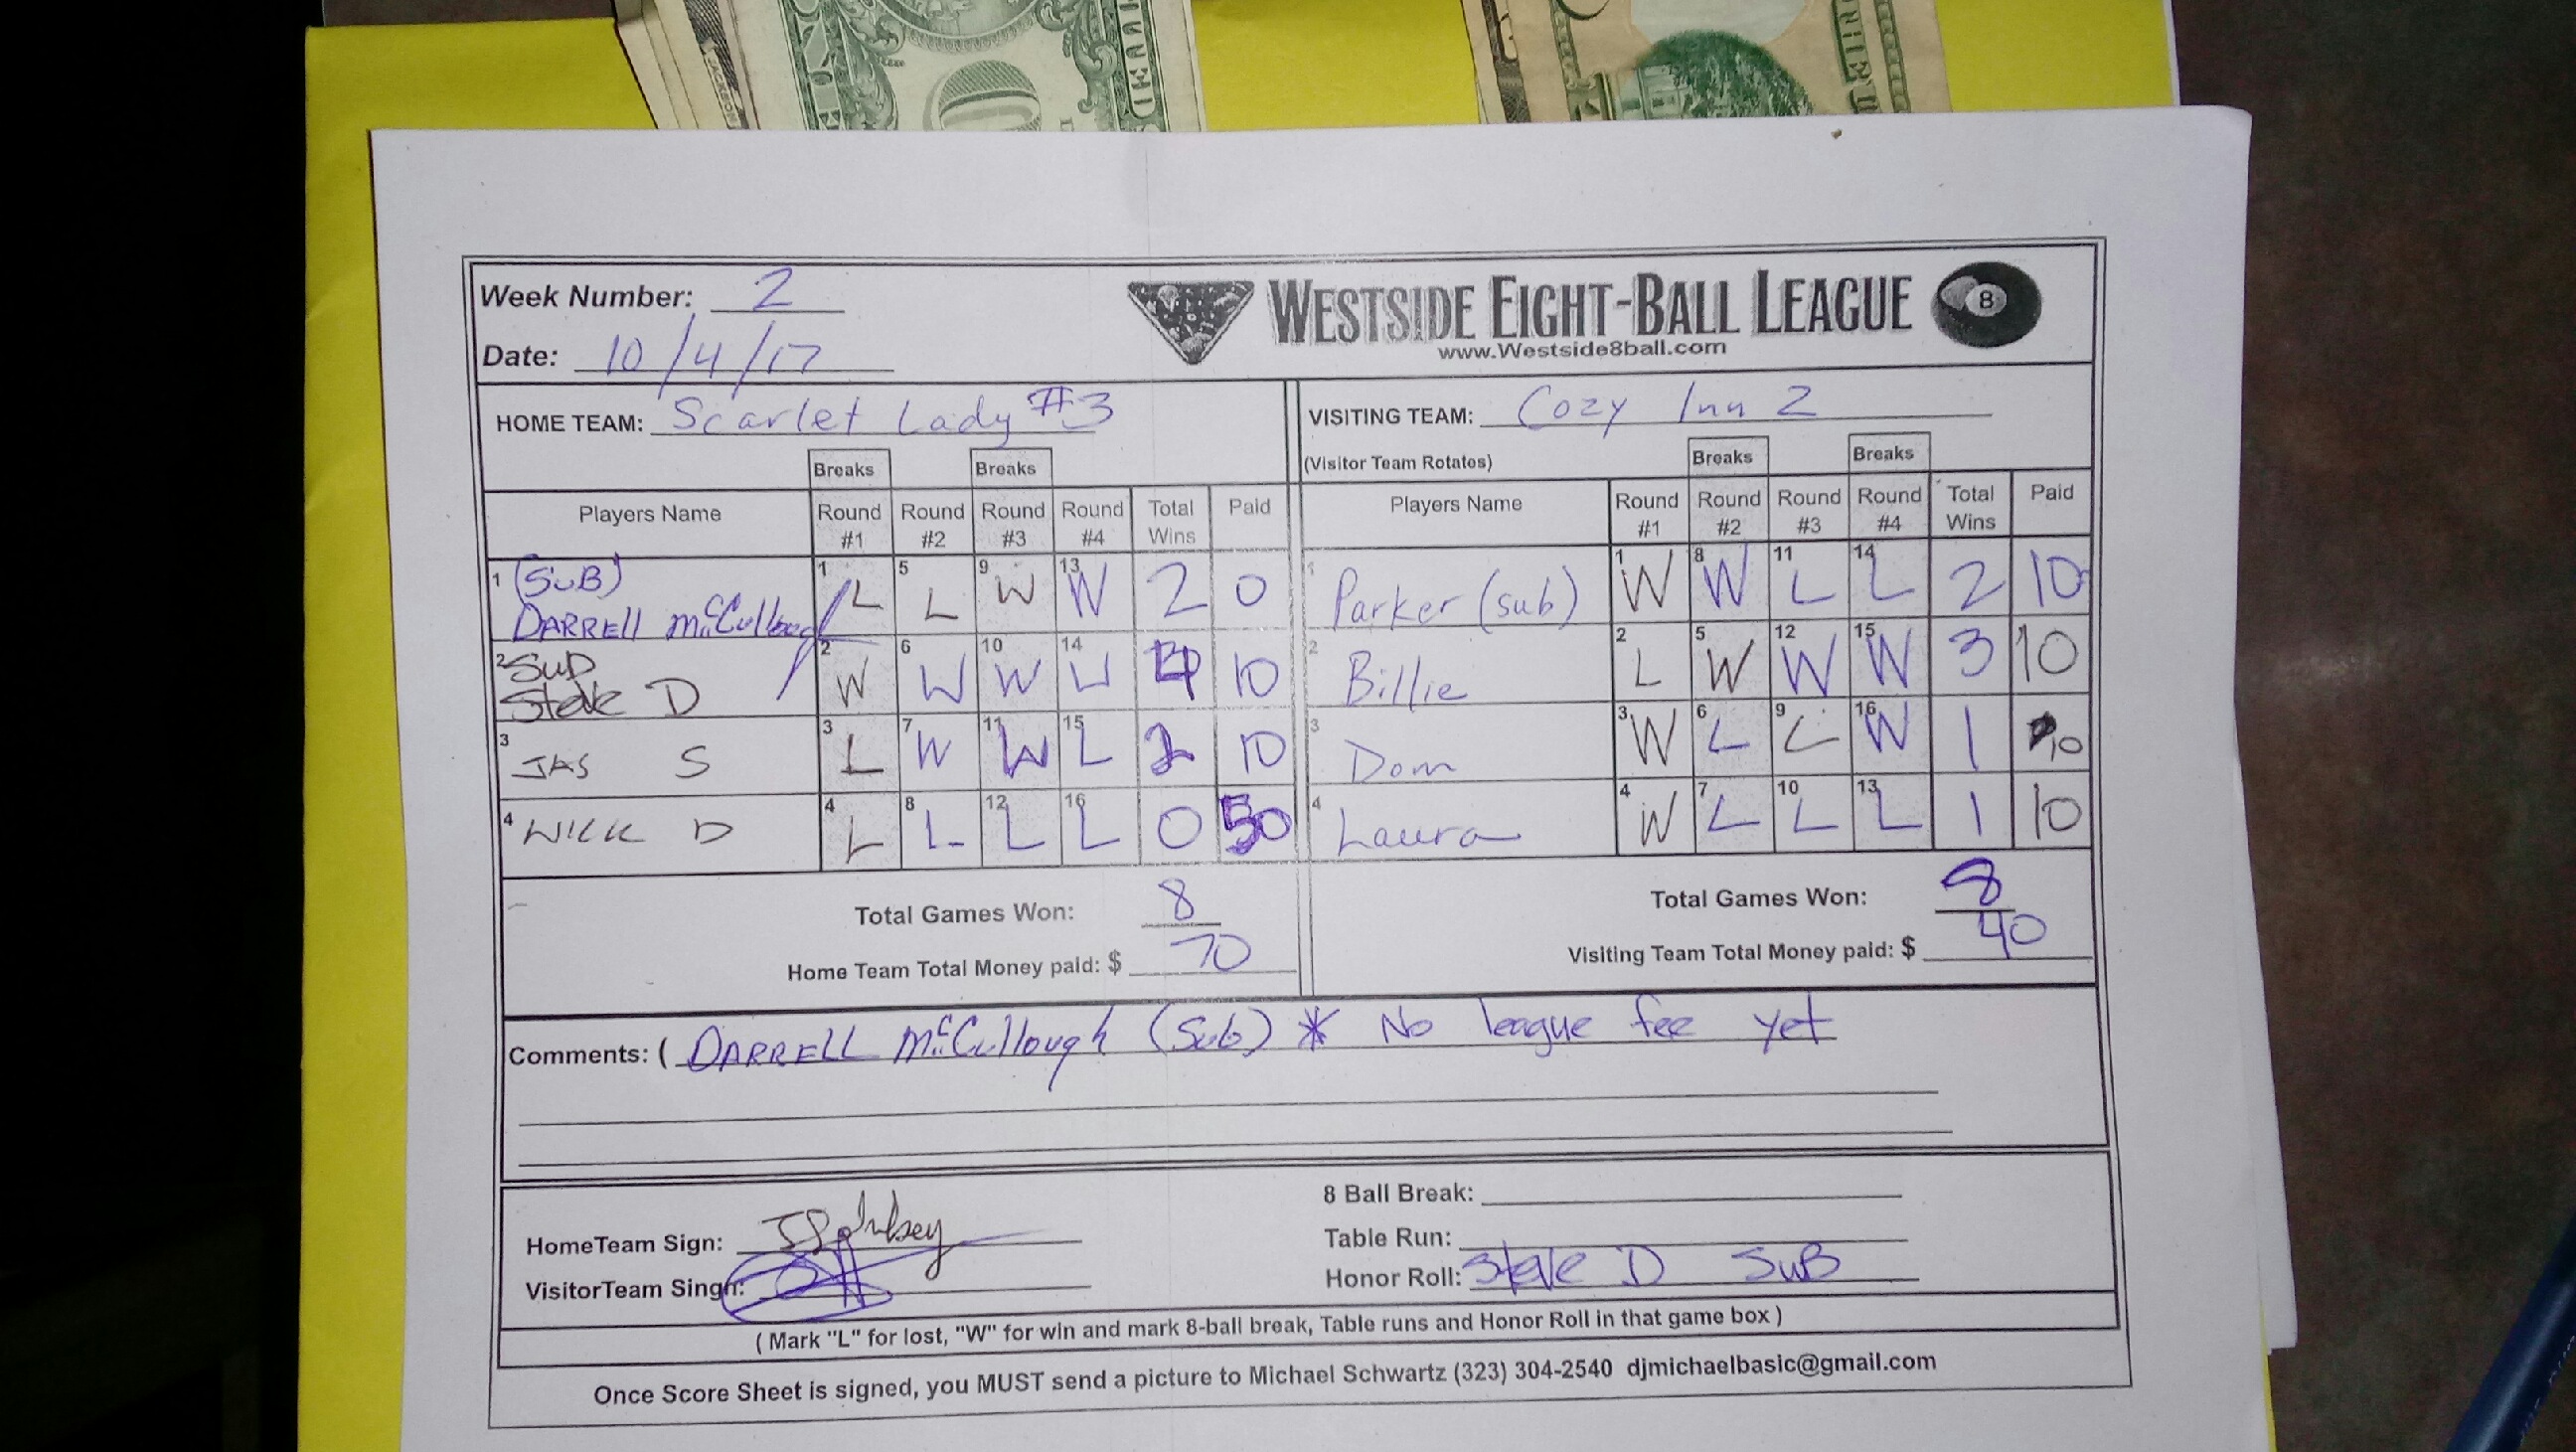 Week Number: 2
Date: 10/4/17
WESTSIDE EIGHT-BALL LEAGUE 8
www.Westside8ball.com
HOME TEAM: Scarlet Lady #3
VISITING TEAM: Cozy Inn 2
(Visitor Team Rotates)
Breaks Breaks Breaks Breaks
Players Name Round #1 Round #2 Round #3 Round #4 Total Wins Paid Players Name Round #1 Round #2 Round #3 Round #4 Total Wins Paid
1 (SUB) DARRELL McCullough 1 L 5 L 9 W 13 W 2 0 1 Parker (sub) 1 W 8 W 11 L 14 L 2 10
2 SUB Steve D 2 W 6 W 10 W 14 W 4 10 2 Billie 2 L 5 W 12 W 15 W 3 10
3 JAS S 3 L 7 W 11 W 15 L 2 10 3 Dom 3 W 6 L 9 L 16 W 1 10
4 WICK D 4 L 8 L 12 L 16 L 0 50 4 Laura 4 W 7 L 10 L 13 L 1 10
Total Games Won: 8 Total Games Won: 8
Home Team Total Money paid: $ 70 Visiting Team Total Money paid: $ 40
Comments: ( DARRELL McCullough (Sub) * No league fee yet
HomeTeam Sign:
VisitorTeam Singh:
8 Ball Break:
Table Run:
Honor Roll: Steve D SUB
( Mark "L" for lost, "W" for win and mark 8-ball break, Table runs and Honor Roll in that game box )
Once Score Sheet is signed, you MUST send a picture to Michael Schwartz (323) 304-2540 djmichaelbasic@gmail.com